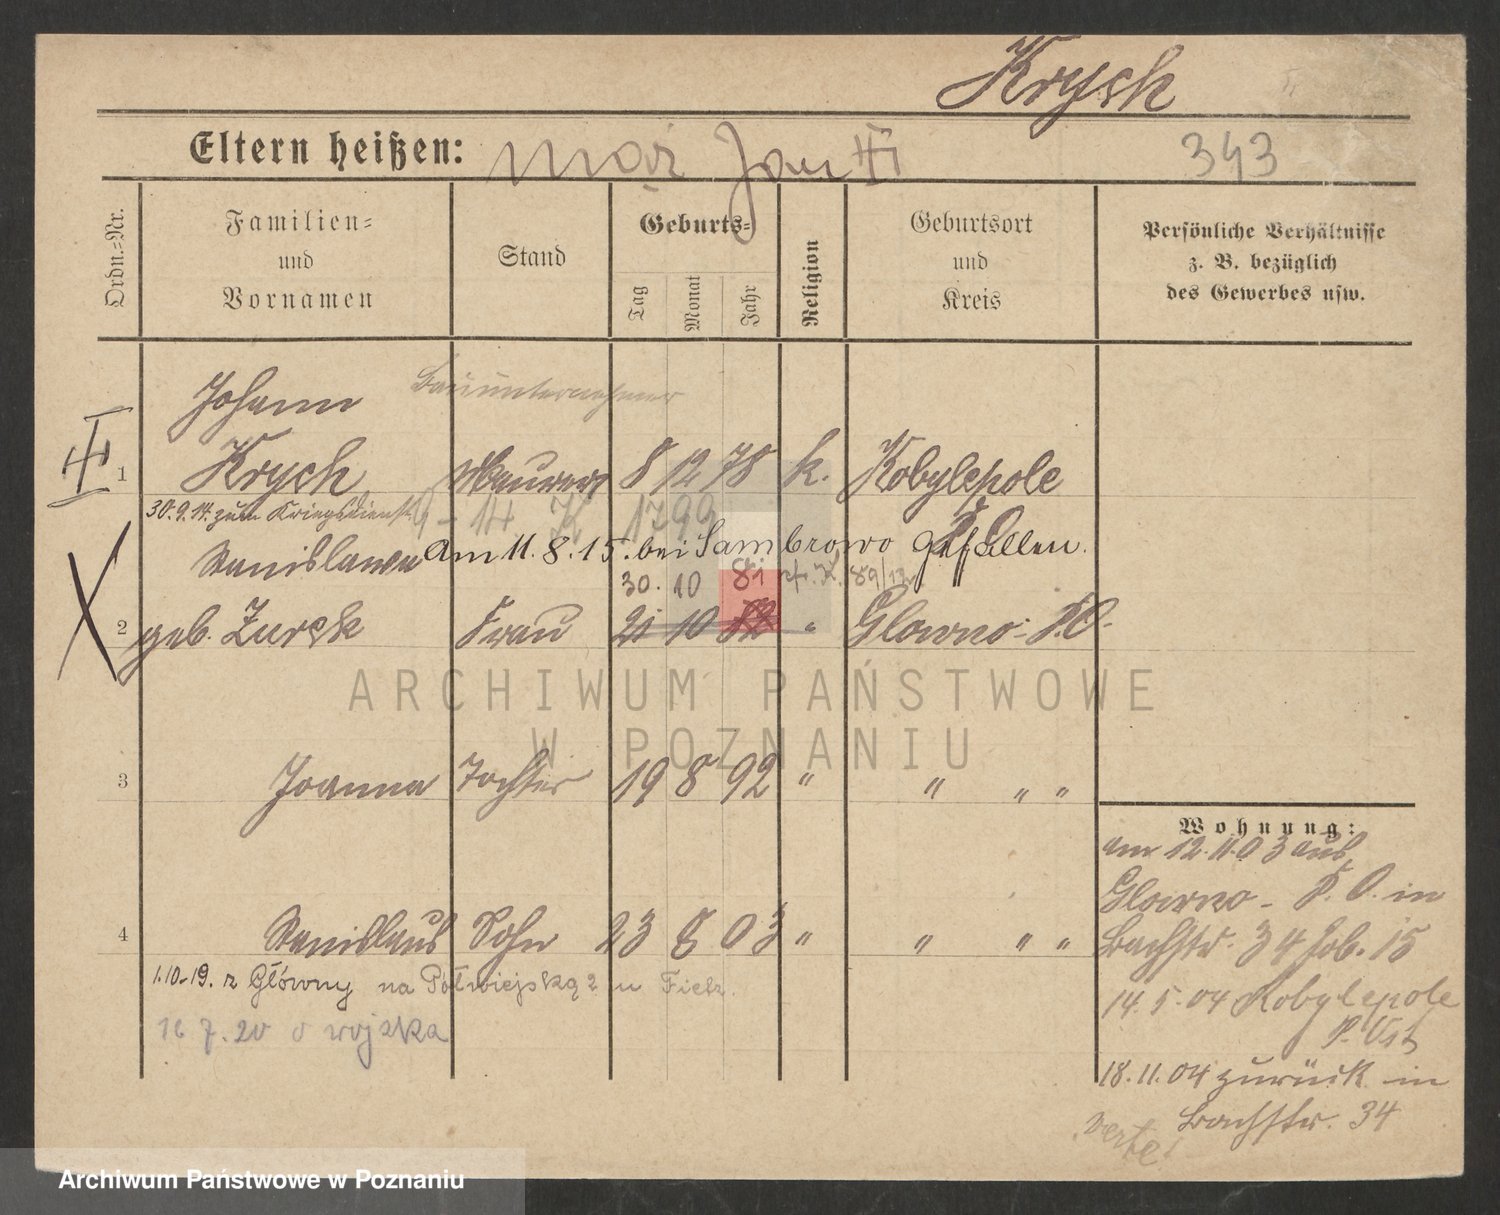 Krysch
Eltern heißen: mąż Jan
343
Ordn.-Nr.
Familien-
und
Vornamen
Stand
Geburts-
Tag
Monat
Jahr
Religion
Geburtsort
und
Kreis
Persönliche Verhältnisse
z. B. bezüglich
des Gewerbes usw.
Johann Bauunternehmer
1 Krysch Maurer 8 12 78 k. Kobylepole
30.9.14. zum Kriegsdienst 9-14 K 1799 P. O.
Stanislawa am 11.8.15. bei Sambrowo gefallen.
30. 10 81 K. 89/13
2 geb. Zursk Frau 21 10 82 " Glowno - P.O.
ARCHIWUM PAŃSTWOWE
W POZNANIU
3 Joanna Tochter 19 8 92 " " " "
Wohnung:
am 12.11.03 aus
Glowno - P. O. in
4 Stanislaus Sohn 23 8 03 " " " "
Bachstr. 34 Hob. 15
1.10-19. z Główny na Półwiejską 2 u Fietz.
14.5.04 Kobylepole
P. Ost
16 7.20 o wojska
18.11.04 zurück in
Bachstr. 34
verte!
Archiwum Państwowe w Poznaniu